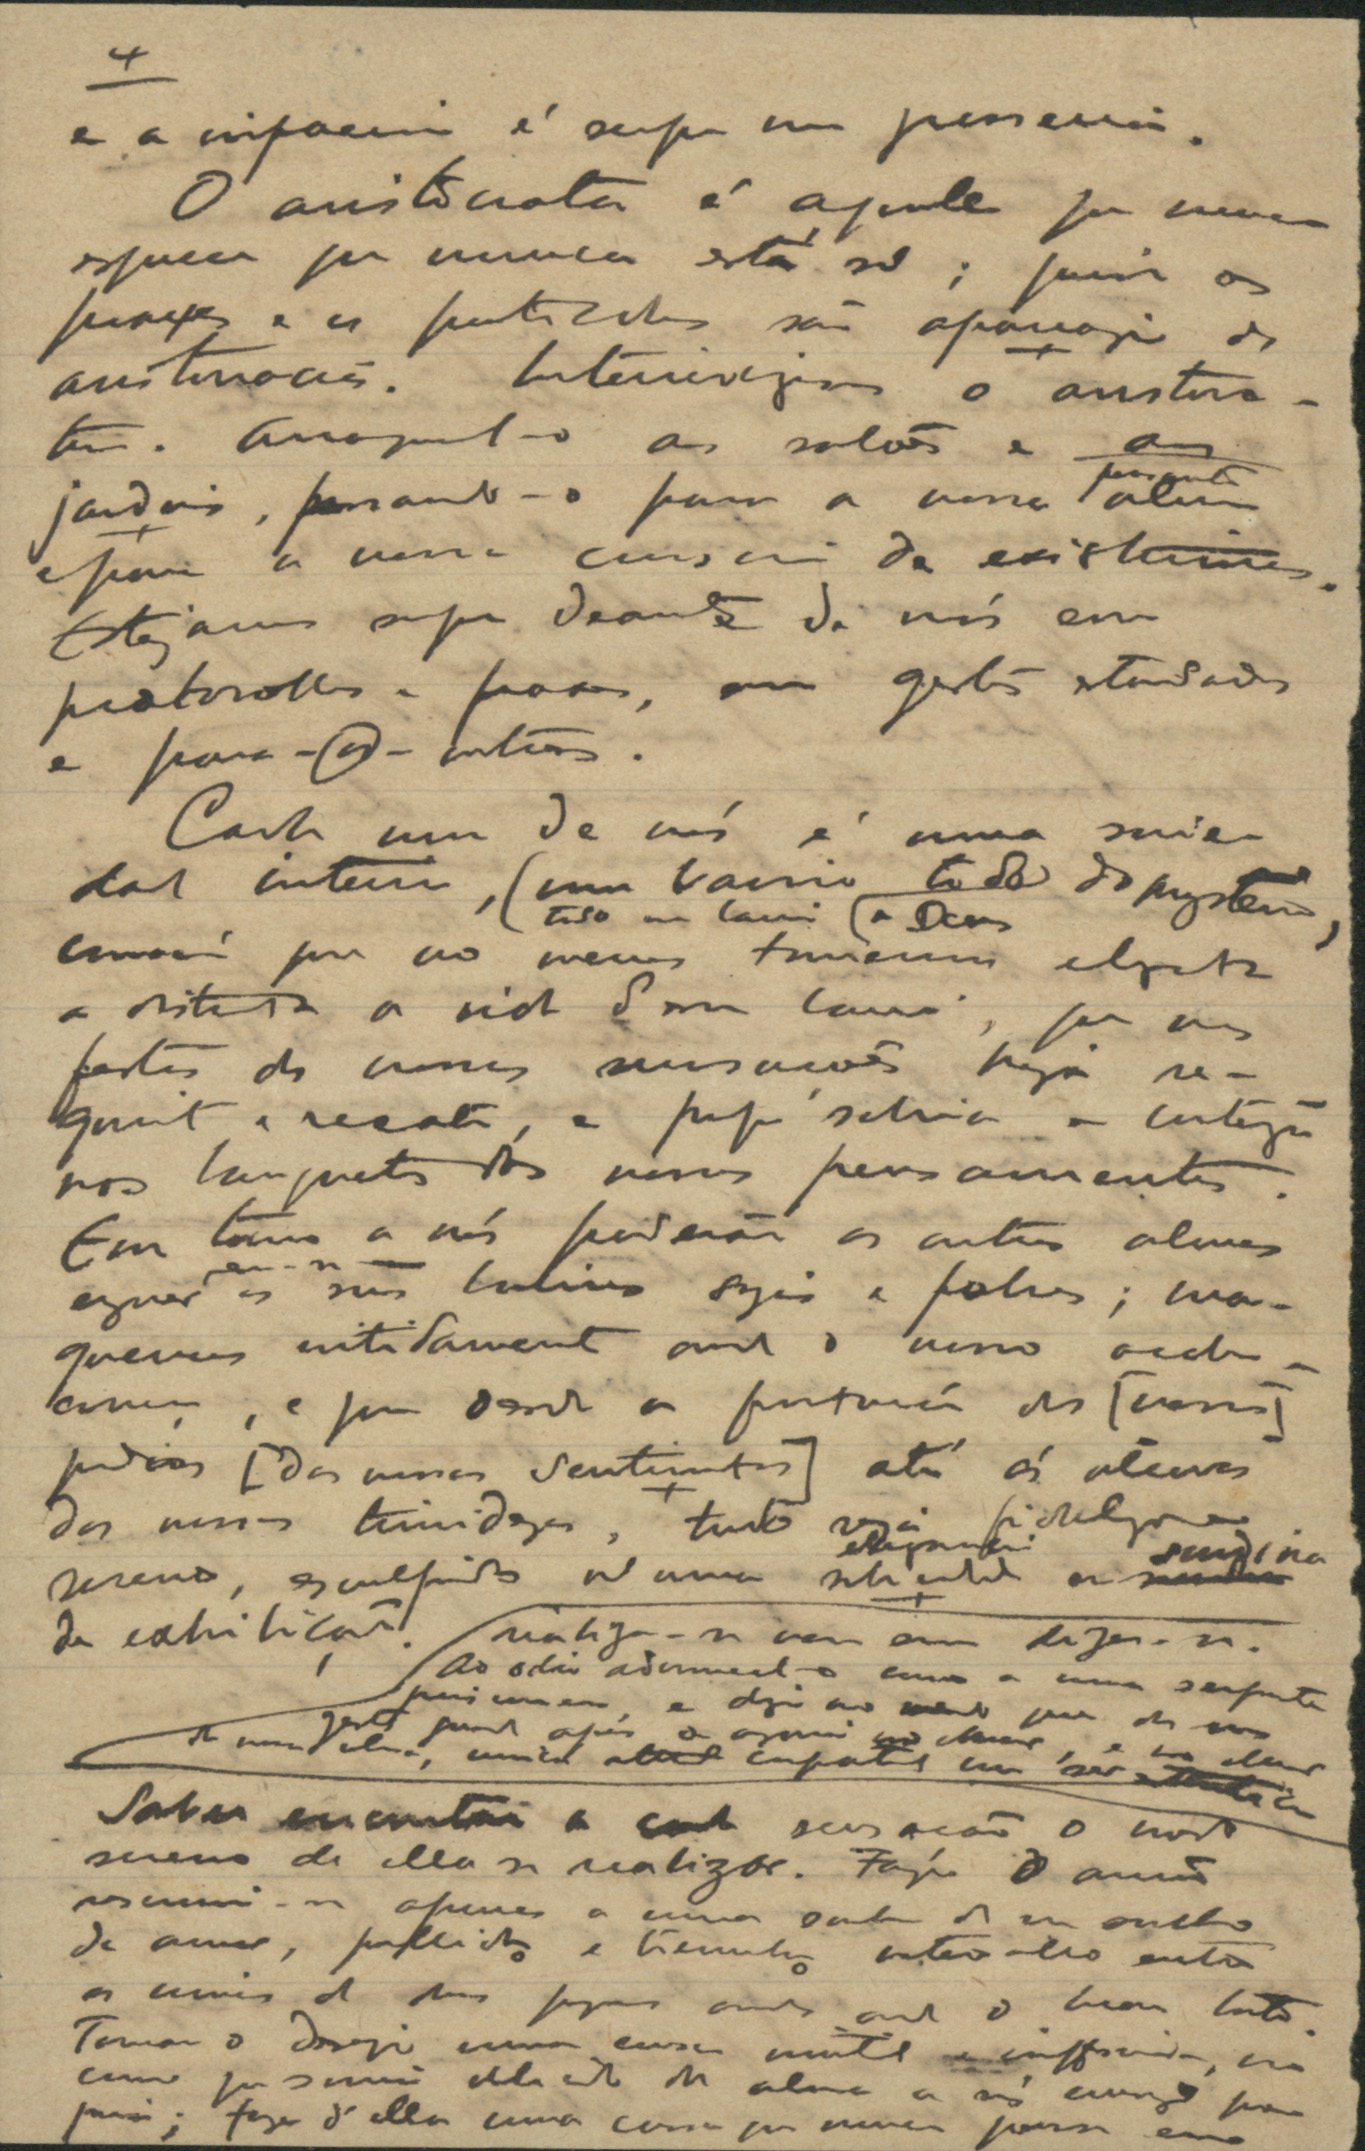 4
e a infancia é sempre um passeio.
O aristocrata é aquelle que nunca
esquece que nunca está só; por isso as
praxes e os protocolos são apanagio das
aristocracias. Interiorizemos o aristocra-
ta. Arranquemol-o aos salões e aos
jardins, passando-o para a nossa alma
e para a nossa consciencia de existirmos.
Estejamos sempre deante de nós em
protocollos e praxes, em gestos estudados
e para-os-outros.
Cada um de nós é uma socie-
dade inteira, (um bairro todo do mysterio,
todo um bairro (a Deus
convem que ao menos tornemos elegante
e distincta a vida d'esse bairro, que nas
festas das nossas sensações haja re-
quinte e recato, e sobria a cortezia
nos banquetes dos nossos pensamentos.
Em torno a nós poderão as outras almas
erguer-em-se os seus bairros sujos e pobres; mar-
quemos nitidamente onde o nosso acaba e
começa, e que desde a frontaria dos [nossos]
predios [dos nossos sentimentos] até ás alcovas
das nossas timidezes, tudo seja fidalgo e
sereno, esculpido n'uma sobriedade ou surdina
elegancia
de exhibição.
realizar-se nem em dizer-se.
Ao odio adormecel-o como a uma serpente
prisioneira, e dizer ao medo que dos seus
gestos guarde apenas a agonia no olhar, e no olhar
da nossa alma, unica attitude compativel com ser esthetica
Saber encontrar a cada sensação o modo
sereno de ella se realizar. Fazer o amor
resumir-se apenas a uma sombra de um sonho
de amor, pallido e tremulo intervallo entre
os cimos de duas pequenas ondas onde o luar bate.
Tornar o desejo uma cousa inutil e inoffensiva, no
como que sorriso delicado da alma a sós comsigo pro-
pria; fazer d'ella uma cousa que nunca pense em